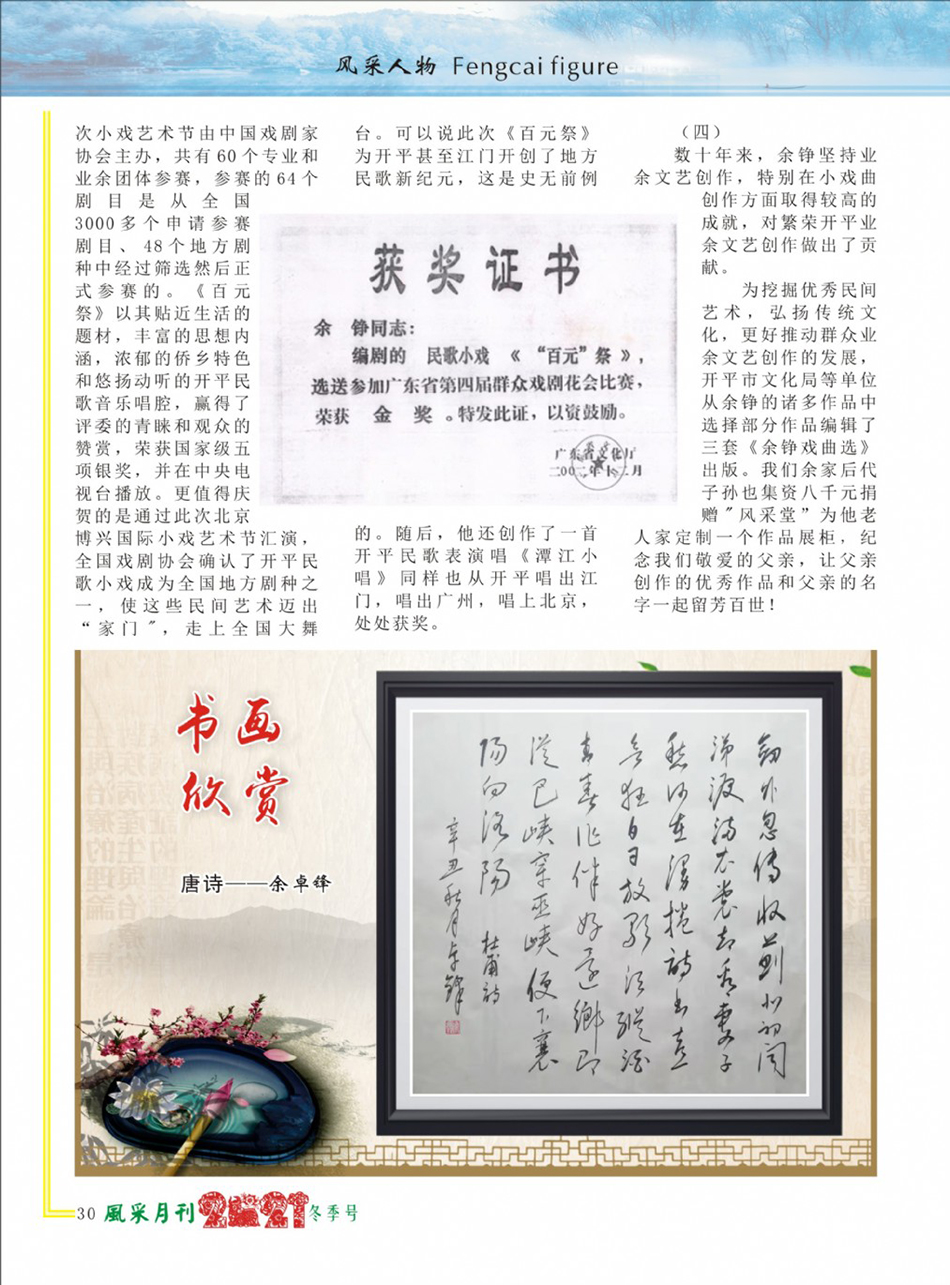 风采人物 Fengcai figure
次小戏艺术节由中国戏剧家
协会主办，共有60个专业和
业余团体参赛，参赛的64个
剧目是从全国
3000多个申请参赛
剧目、48个地方剧
种中经过筛选然后正
式参赛的。《百元
祭》以其贴近生活的
题材，丰富的思想内
涵，浓郁的侨乡特色
和悠扬动听的开平民
歌音乐唱腔，赢得了
评委的青睐和观众的
赞赏，荣获国家级五
项银奖，并在中央电
视台播放。更值得庆
贺的是通过此次北京
博兴国际小戏艺术节汇演，
全国戏剧协会确认了开平民
歌小戏成为全国地方剧种之
一，使这些民间艺术迈出
“家门"，走上全国大舞
台。可以说此次《百元祭》
为开平甚至江门开创了地方
民歌新纪元，这是史无前例
获奖证书
余 铮同志：
编剧的 民歌小戏 《“百元”祭》，
选送参加广东省第四届群众戏剧花会比赛，
荣获 金 奖 。特发此证，以资鼓励。
广东省文化厅
二00二年十二月
的。随后，他还创作了一首
开平民歌表演唱《潭江小
唱》同样也从开平唱出江
门，唱出广州，唱上北京，
处处获奖。
（四）
数十年来，余铮坚持业
余文艺创作，特别在小戏曲
创作方面取得较高的
成就，对繁荣开平业
余文艺创作做出了贡
献。
为挖掘优秀民间
艺术，弘扬传统文
化，更好推动群众业
余文艺创作的发展，
开平市文化局等单位
从余铮的诸多作品中
选择部分作品编辑了
三套《余铮戏曲选》
出版。我们余家后代
子孙也集资八千元捐
赠"风采堂”为他老
人家定制一个作品展柜，纪
念我们敬爱的父亲，让父亲
创作的优秀作品和父亲的名
字一起留芳百世！
书画
欣赏
唐诗——余卓锋
劍外忽傳收薊北初聞
涕淚滿衣裳却看妻子
愁何在漫捲詩書喜
欲狂白日放歌須縱酒
青春作伴好還鄉即
從巴峽穿巫峽便下襄
陽向洛陽 杜甫詩
辛丑秋月卓鋒
30 風采月刊 2021 冬季号